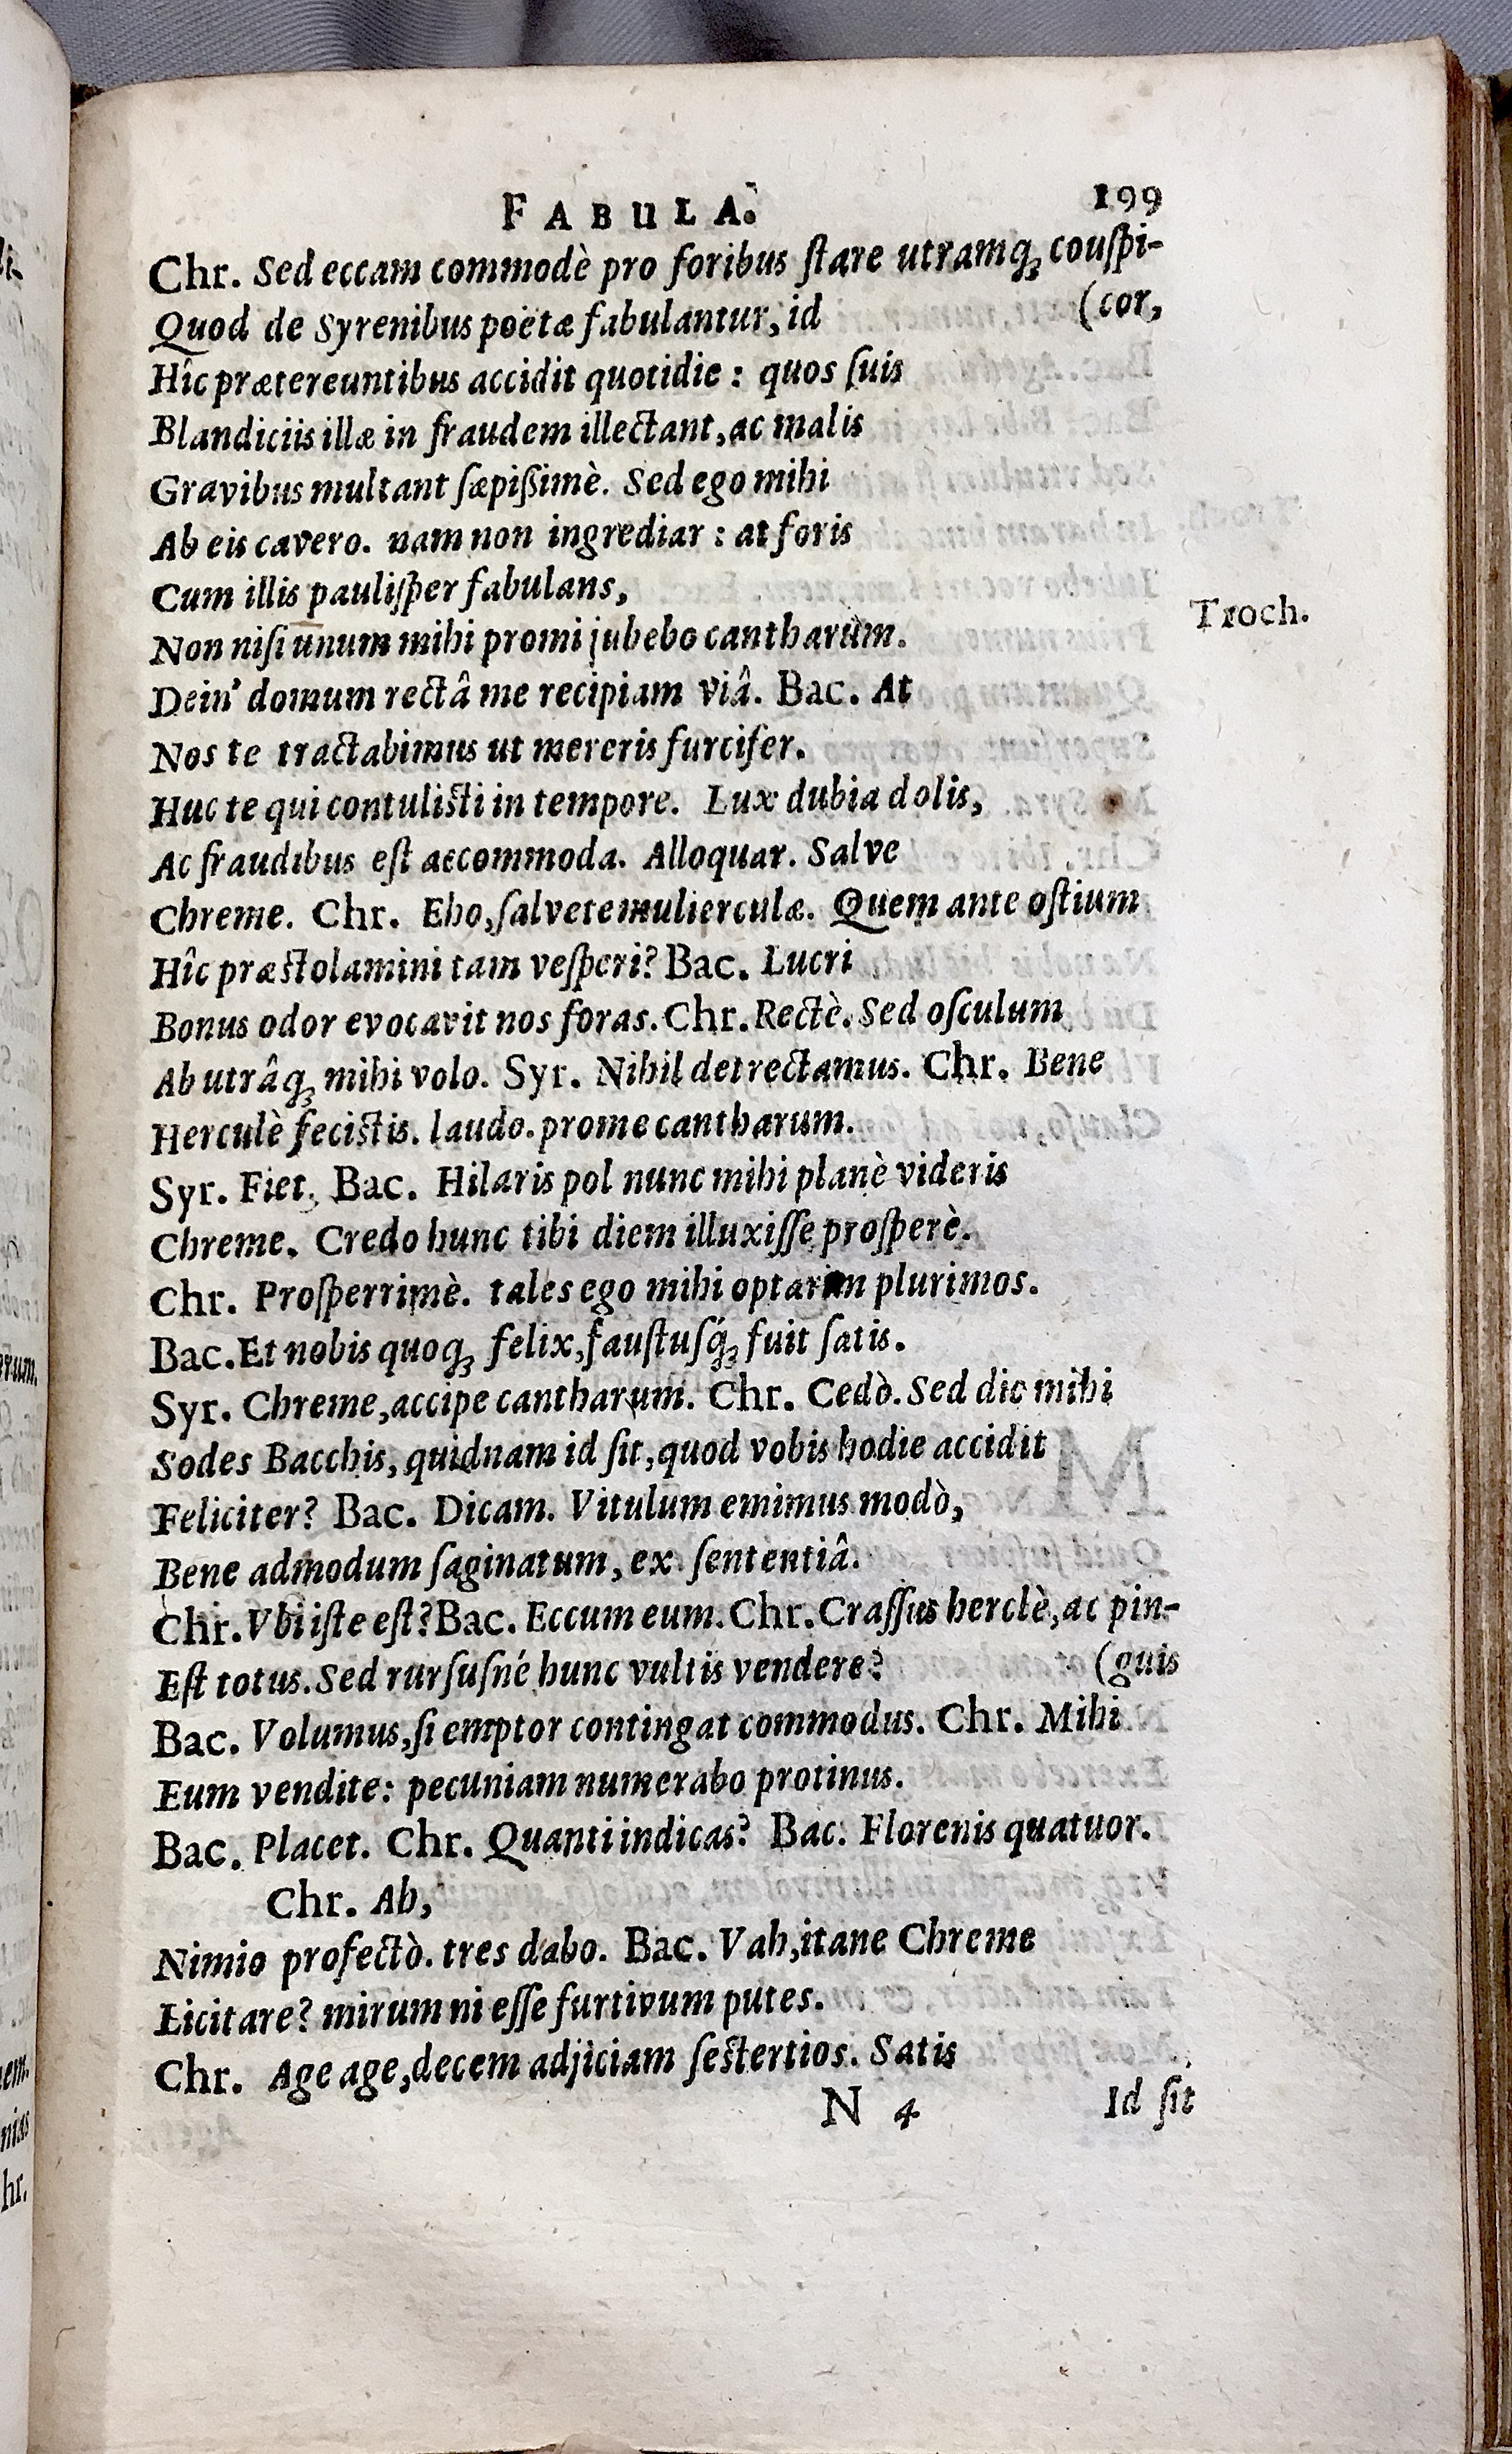 FABULA. 199
Chr. Sed eccam commodè pro foribus ſtare utramq́; couſpi-
Quod de Syrenibus poëtæ fabulantur, id (cor,
Hîc prætereuntibus accidit quotidie : quos ſuis
Blandiciis illæ in fraudem illectant, ac malis
Gravibus multant ſæpiſſimè. Sed ego mihi
Ab eis cavero. nam non ingrediar : at foris
Cum illis pauliſper fabulans,
Non niſi unum mihi promi jubebo cantharum. Troch.
Dein' domum rectâ me recipiam viâ. Bac. At
Nos te tractabimus ut mereris furcifer.
Huc te qui contuliſti in tempore. Lux dubia dolis,
Ac fraudibus eſt accommoda. Alloquar. Salve
Chreme. Chr. Eho, ſalvete mulierculæ. Quem ante oſtium
Hîc præſtolamini tam veſperi? Bac. Lucri
Bonus odor evocavit nos foras. Chr. Rectè. Sed oſculum
Ab utrâq; mihi volo. Syr. Nihil detrectamus. Chr. Bene
Herculè feciſtis. laudo. prome cantharum.
Syr. Fiet. Bac. Hilaris pol nunc mihi planè videris
Chreme. Credo hunc tibi diem illuxiſſe proſperè.
Chr. Proſperrimè. tales ego mihi optarim plurimos.
Bac. Et nobis quoq; felix, fauſtuſq́; fuit ſatis.
Syr. Chreme, accipe cantharum. Chr. Cedò. Sed dic mihi
Sodes Bacchis, quidnam id ſit, quod vobis hodie accidit
Feliciter? Bac. Dicam. Vitulum emimus modò,
Bene admodum ſaginatum, ex ſententiâ.
Chr. Vbi iſte eſt? Bac. Eccum eum. Chr. Craſſus herclè, ac pin-
Eſt totus. Sed rurſuſné hunc vultis vendere? (guis
Bac. Volumus, ſi emptor contingat commodus. Chr. Mihi
Eum vendite: pecuniam numerabo protinus.
Bac. Placet. Chr. Quanti indicas? Bac. Florenis quatuor.
Chr. Ah,
Nimio profectò. tres dabo. Bac. Vah, itane Chreme
Licitare? mirum ni eſſe furtivum putes.
Chr. Age age, decem adjiciam ſeſtertios. Satis
N 4 Id ſit